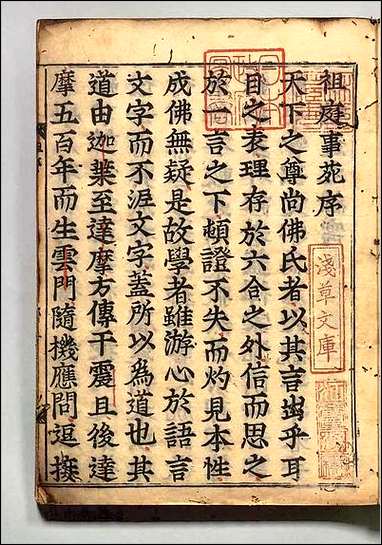 祖庭事苑序
天下之尊尚佛氏者以其言出乎耳
目之表理存於六合之外信而思之
於一言之下頓證不失而灼見本性
成佛無疑是故學者雖游心於語言
文字而不泥文字蓋所以為道也其
道由迦葉至達摩方傳于震旦後達
摩五百年而生雲門隨機應問逗接
淺草文庫